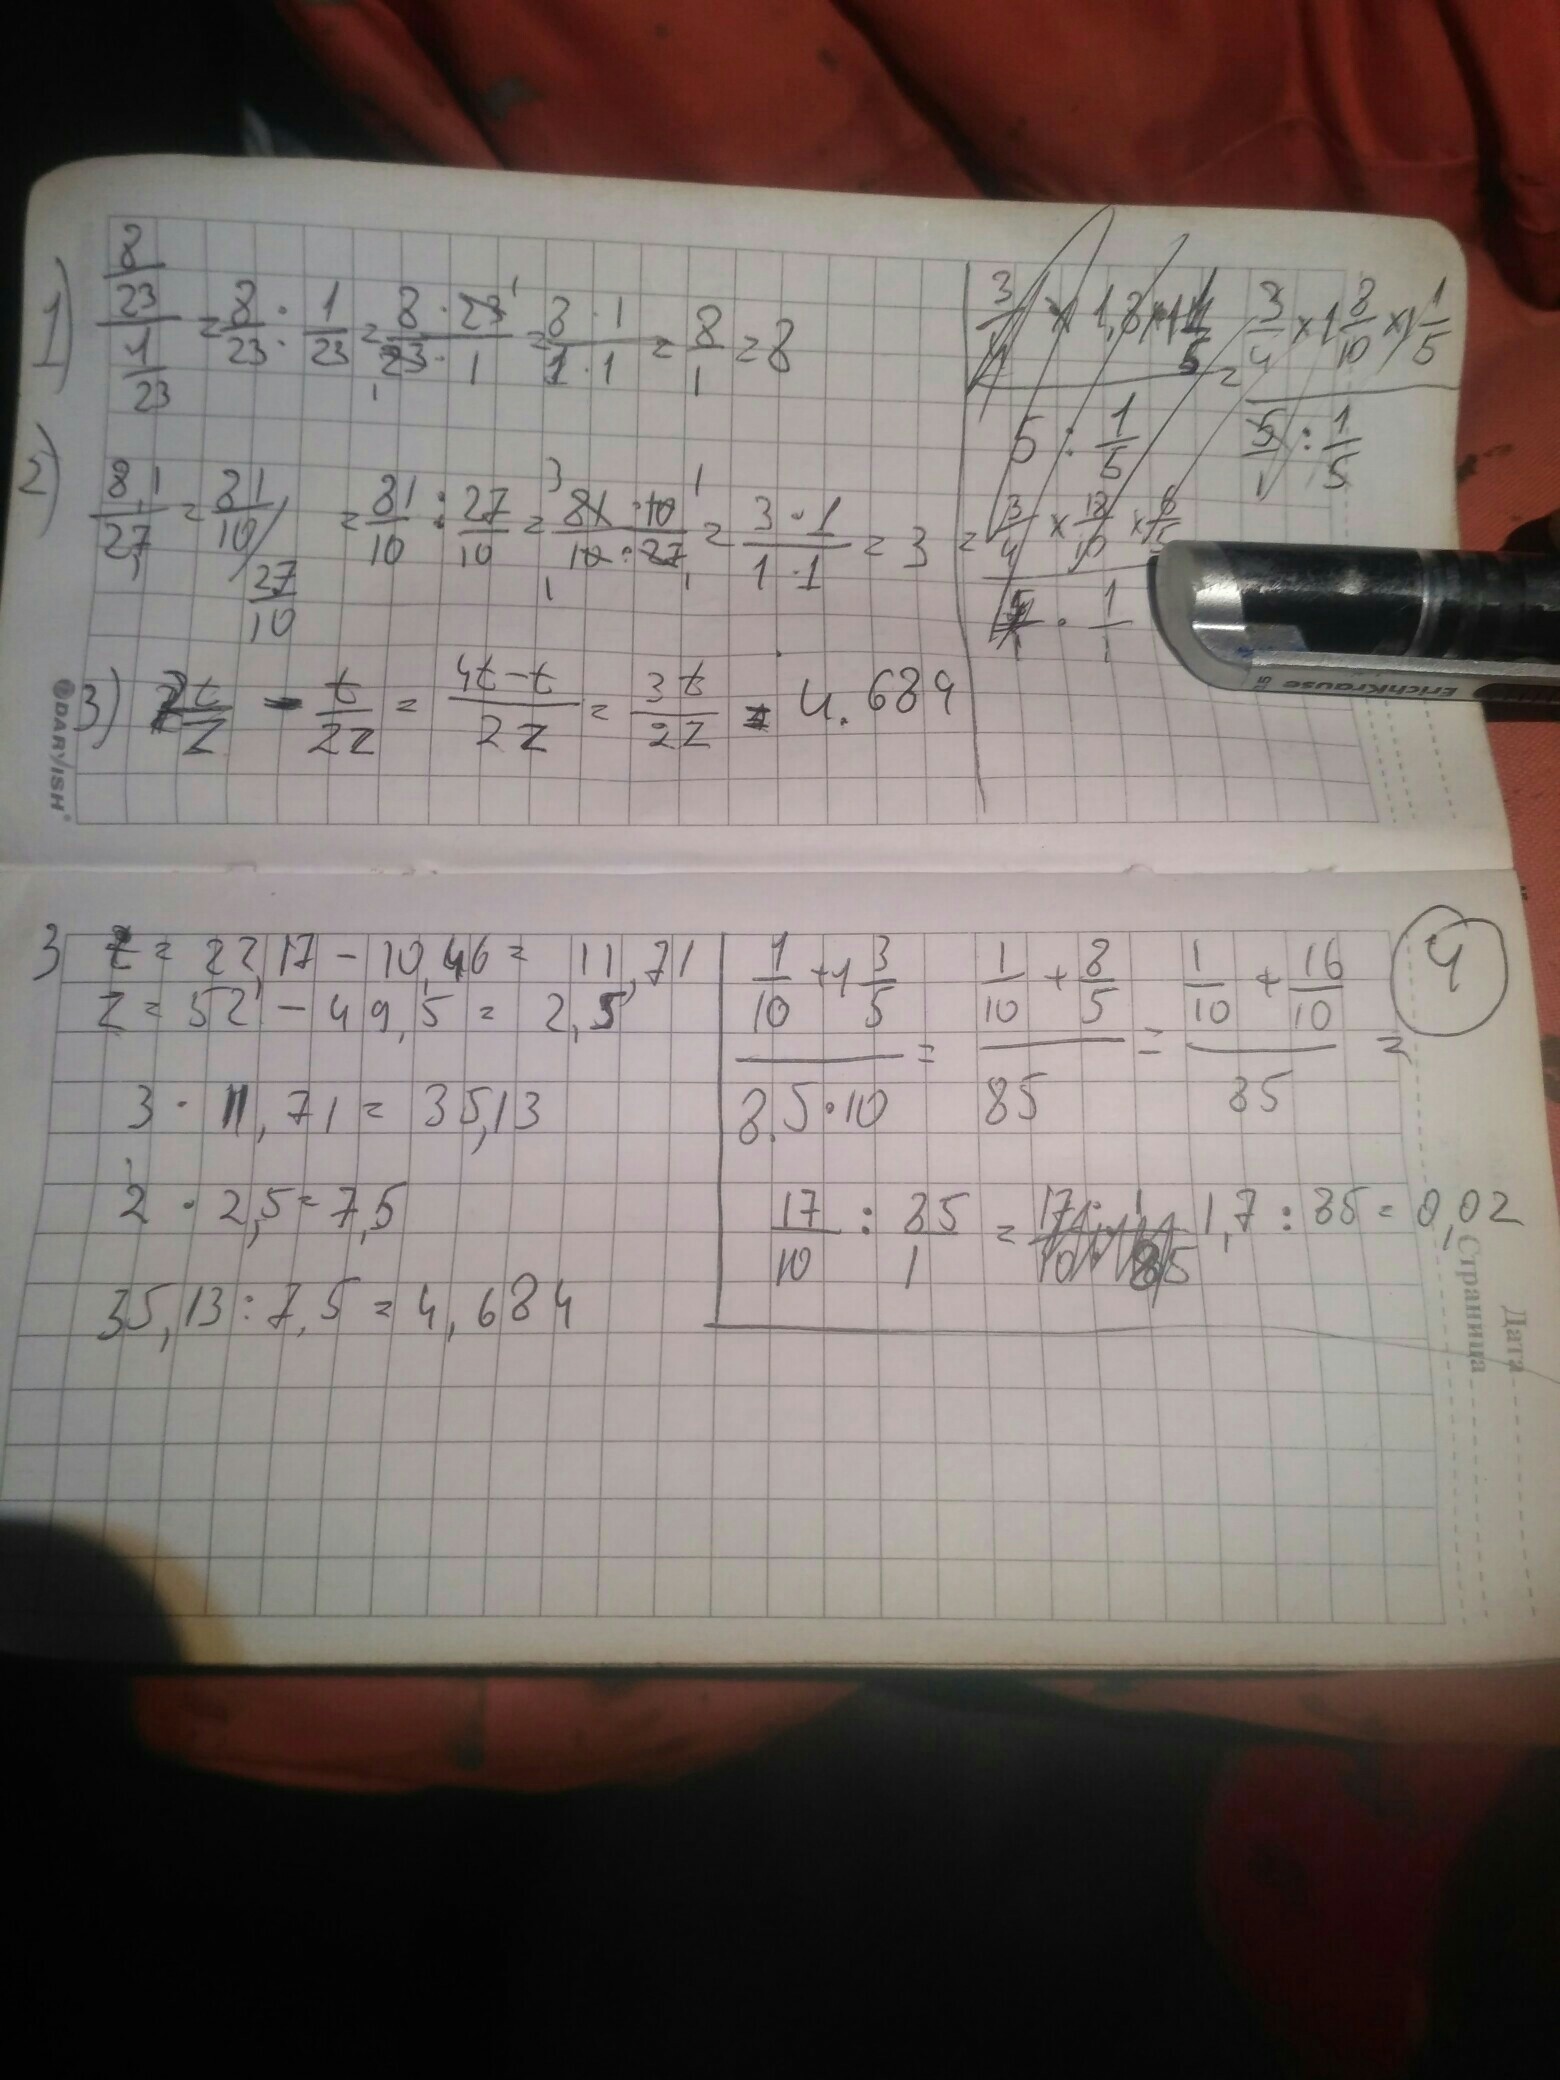 1) 8/23 / 1/23 = 8/23 : 1/23 = 8 · 23 / 23 · 1 = 8 · 1 / 1 · 1 = 8/1 = 8
2) 8,1 / 2,7 = 81/10 / 27/10 = 81/10 : 27/10 = 81 · 10 / 10 · 27 = 3 · 1 / 1 · 1 = 3
3) 2t/z - t/2z = 4t-t / 2z = 3t/2z = 4.684
3/4 × 1,8 × 1 1/5 / 5 : 1/5 = 3/4 × 1 8/10 × 1 1/5 / 5/1 : 1/5
= 3/4 × 18/10 × 6/5
DARVISH
3 t = 22,17 - 10,46 = 11,71
z = 52 - 49,5 = 2,5
3 · 11,71 = 35,13
2 · 2,5 = 7,5
35,13 : 7,5 = 4,684
4
1/10 + 1 3/5 / 8.5 · 10 = 1/10 + 8/5 / 85 = 1/10 + 16/10 / 85 =
17/10 : 85/1 = 1,7 : 85 = 0,02
Дата
Страница
ErichKrause